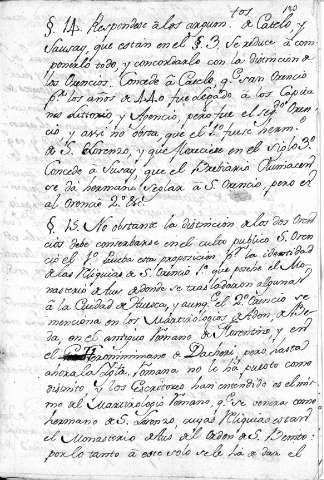 130
§. 14. Respondese à los argum.tos de Catelo, y
Sausay, que estan en el §. 3. Se reduce à com
ponerlo todo, y concordarlo con la distincion de
los Orencios. Concede à Catelo, q.e San Orencio
p.r los años de 440 fue elegado à los Capita
nes Litorio, y Aponcio, pero fue el seg.do Oren
cio, y assi no obsta, que el 1.o fuese herm.o
de S. Lorenzo, y que floreciese en el siglo 3.o
Concede à Susay, que el Breviario
se da hermano Seglar à S. Orencio, pero es
al Orencio 2.o &c.
§. 15. No obstante la distincion de los dos Oren
cios debe conservarse en el culto publico S. Oren
cio el 1.o Prueba esta proposicion p.r la identidad
de las Reliquias de S. Orencio 1.o que posehe el Mo
nasterio de Aux de donde se trasladaron algunas
à la Ciudad de Huesca, y aunq.e el 2.o Orencio se
menciona en los Martirologios de Adon, de Be
da, en el antiguo Romano de Florentino, y en
el de Dacheri, pero hasta
ahora la Igla. Romana no le ha puesto como
distinto y los Escritores han entendido es el mis
mo del Martirologio Romano, q.e se venera como
hermano de S. Lorenzo, cuyas Reliquias estan en
el Monasterio de Aux del Orden de S. Benito:
por lo tanto à este solo se le ha de dar el